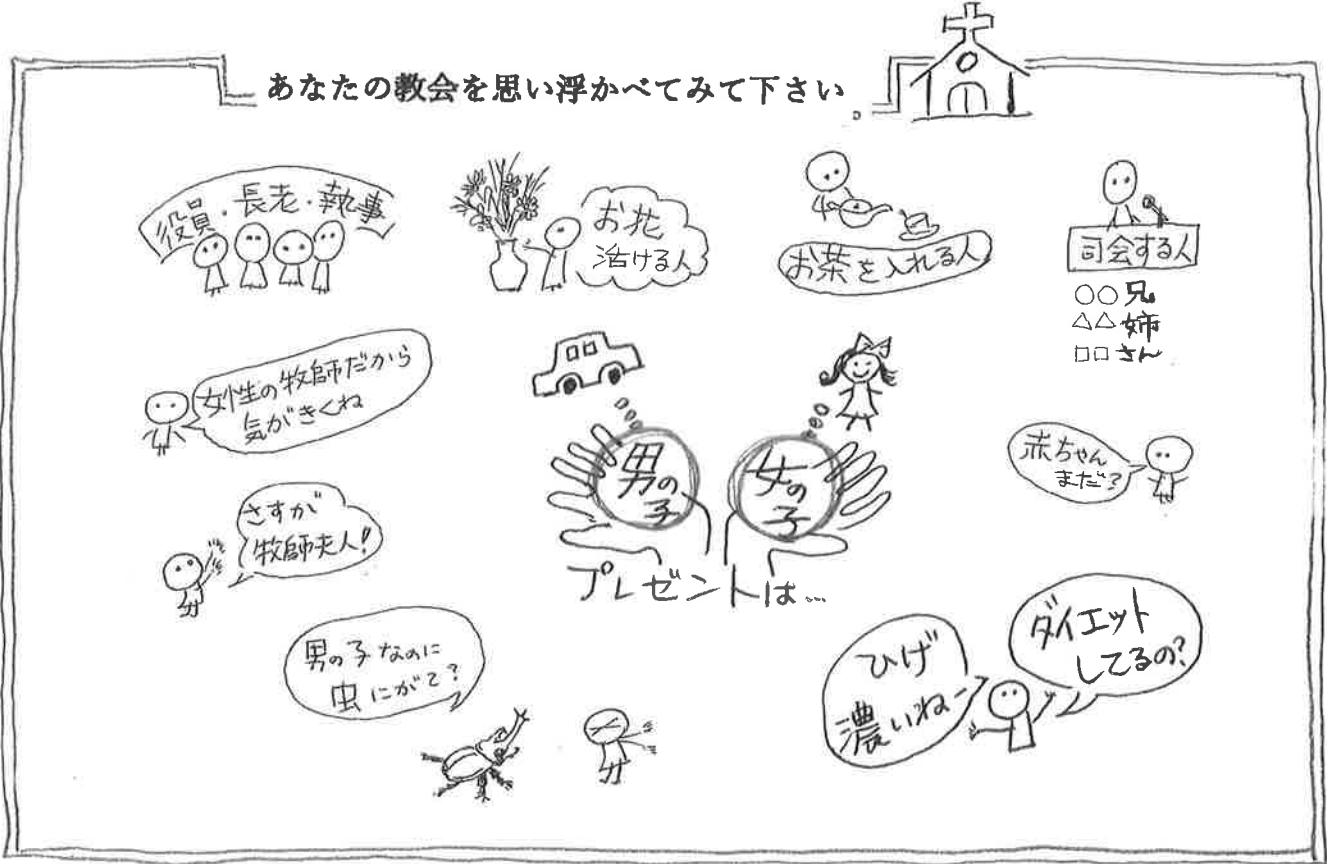 あなたの教会を思い浮かべてみて下さい。
役員・長老・執事
お花
活ける人
お茶を入れる人
司会する人
○○兄
△△姉
□□さん
女性の牧師だから
気がきくね
男の子
女の子
プレゼントは…
赤ちゃん
まだ?
さすが
牧師夫人!
男の子なのに
虫にがて?
ひげ
濃いねー
ダイエット
してるの?